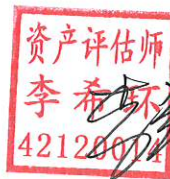 资产评估师
李希环
42120014